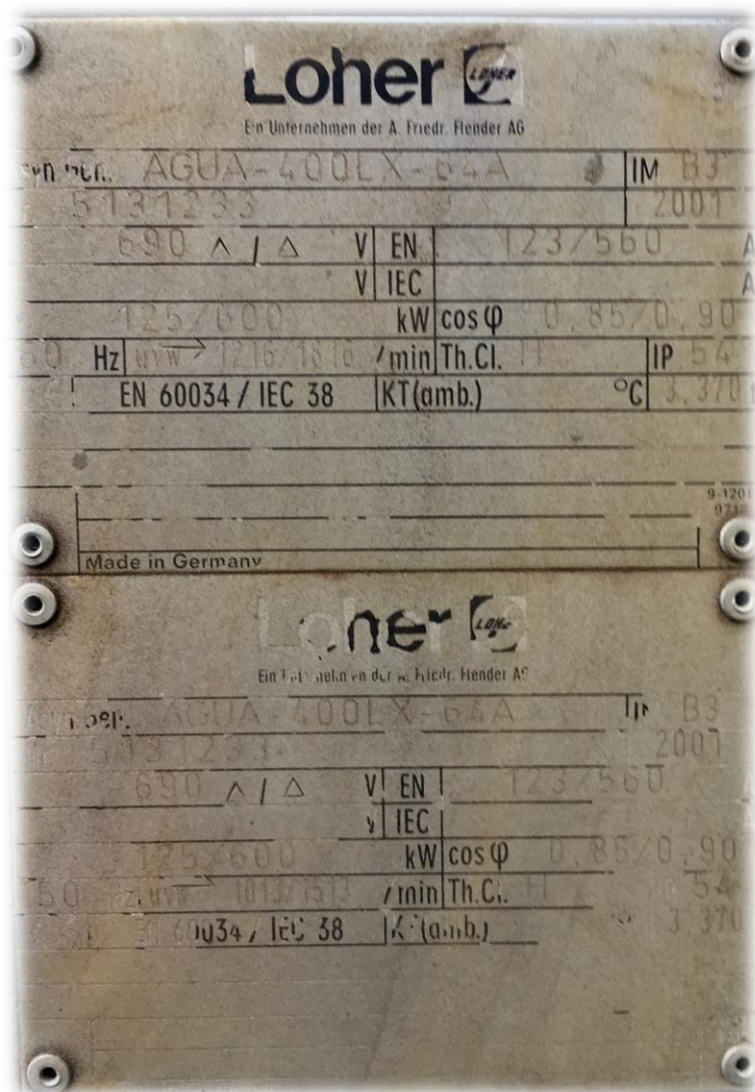 Loher LOHER
Ein Unternehmen der A. Friedr. Flender AG
AGUA-400LX-64A IM B3
5131233 2001
690 Δ V EN 123/560 A
V IEC A
125/600 kW cos φ 0,85/0,90
60 Hz uvw → 1216/1816 /min Th.Cl. IP 54
EN 60034 / IEC 38 KT(amb.) °C 3,370
9-120
Made in Germany
LOHER
der Friedr. Flender AG
AGUA-400LX-64A B3
5131233 2001
690 Δ V EN 123/560
IEC
125/600 kW cos φ 0,85/0,90
50 uvw → 1013/1513 /min 54
/ IEC 38 3,370